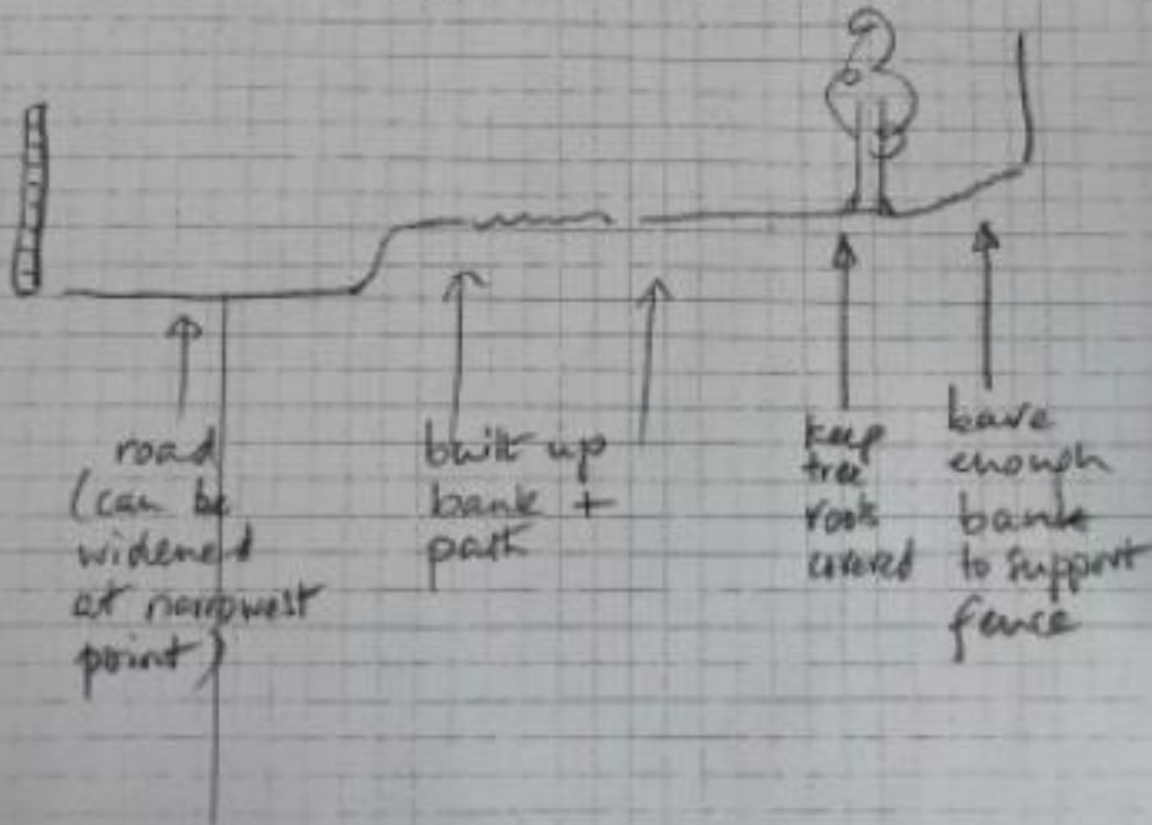 road
(can be
widened
at narrowest
point)
built up
bank +
path
keep
tree
roots
covered
leave
enough
bank
to support
fence